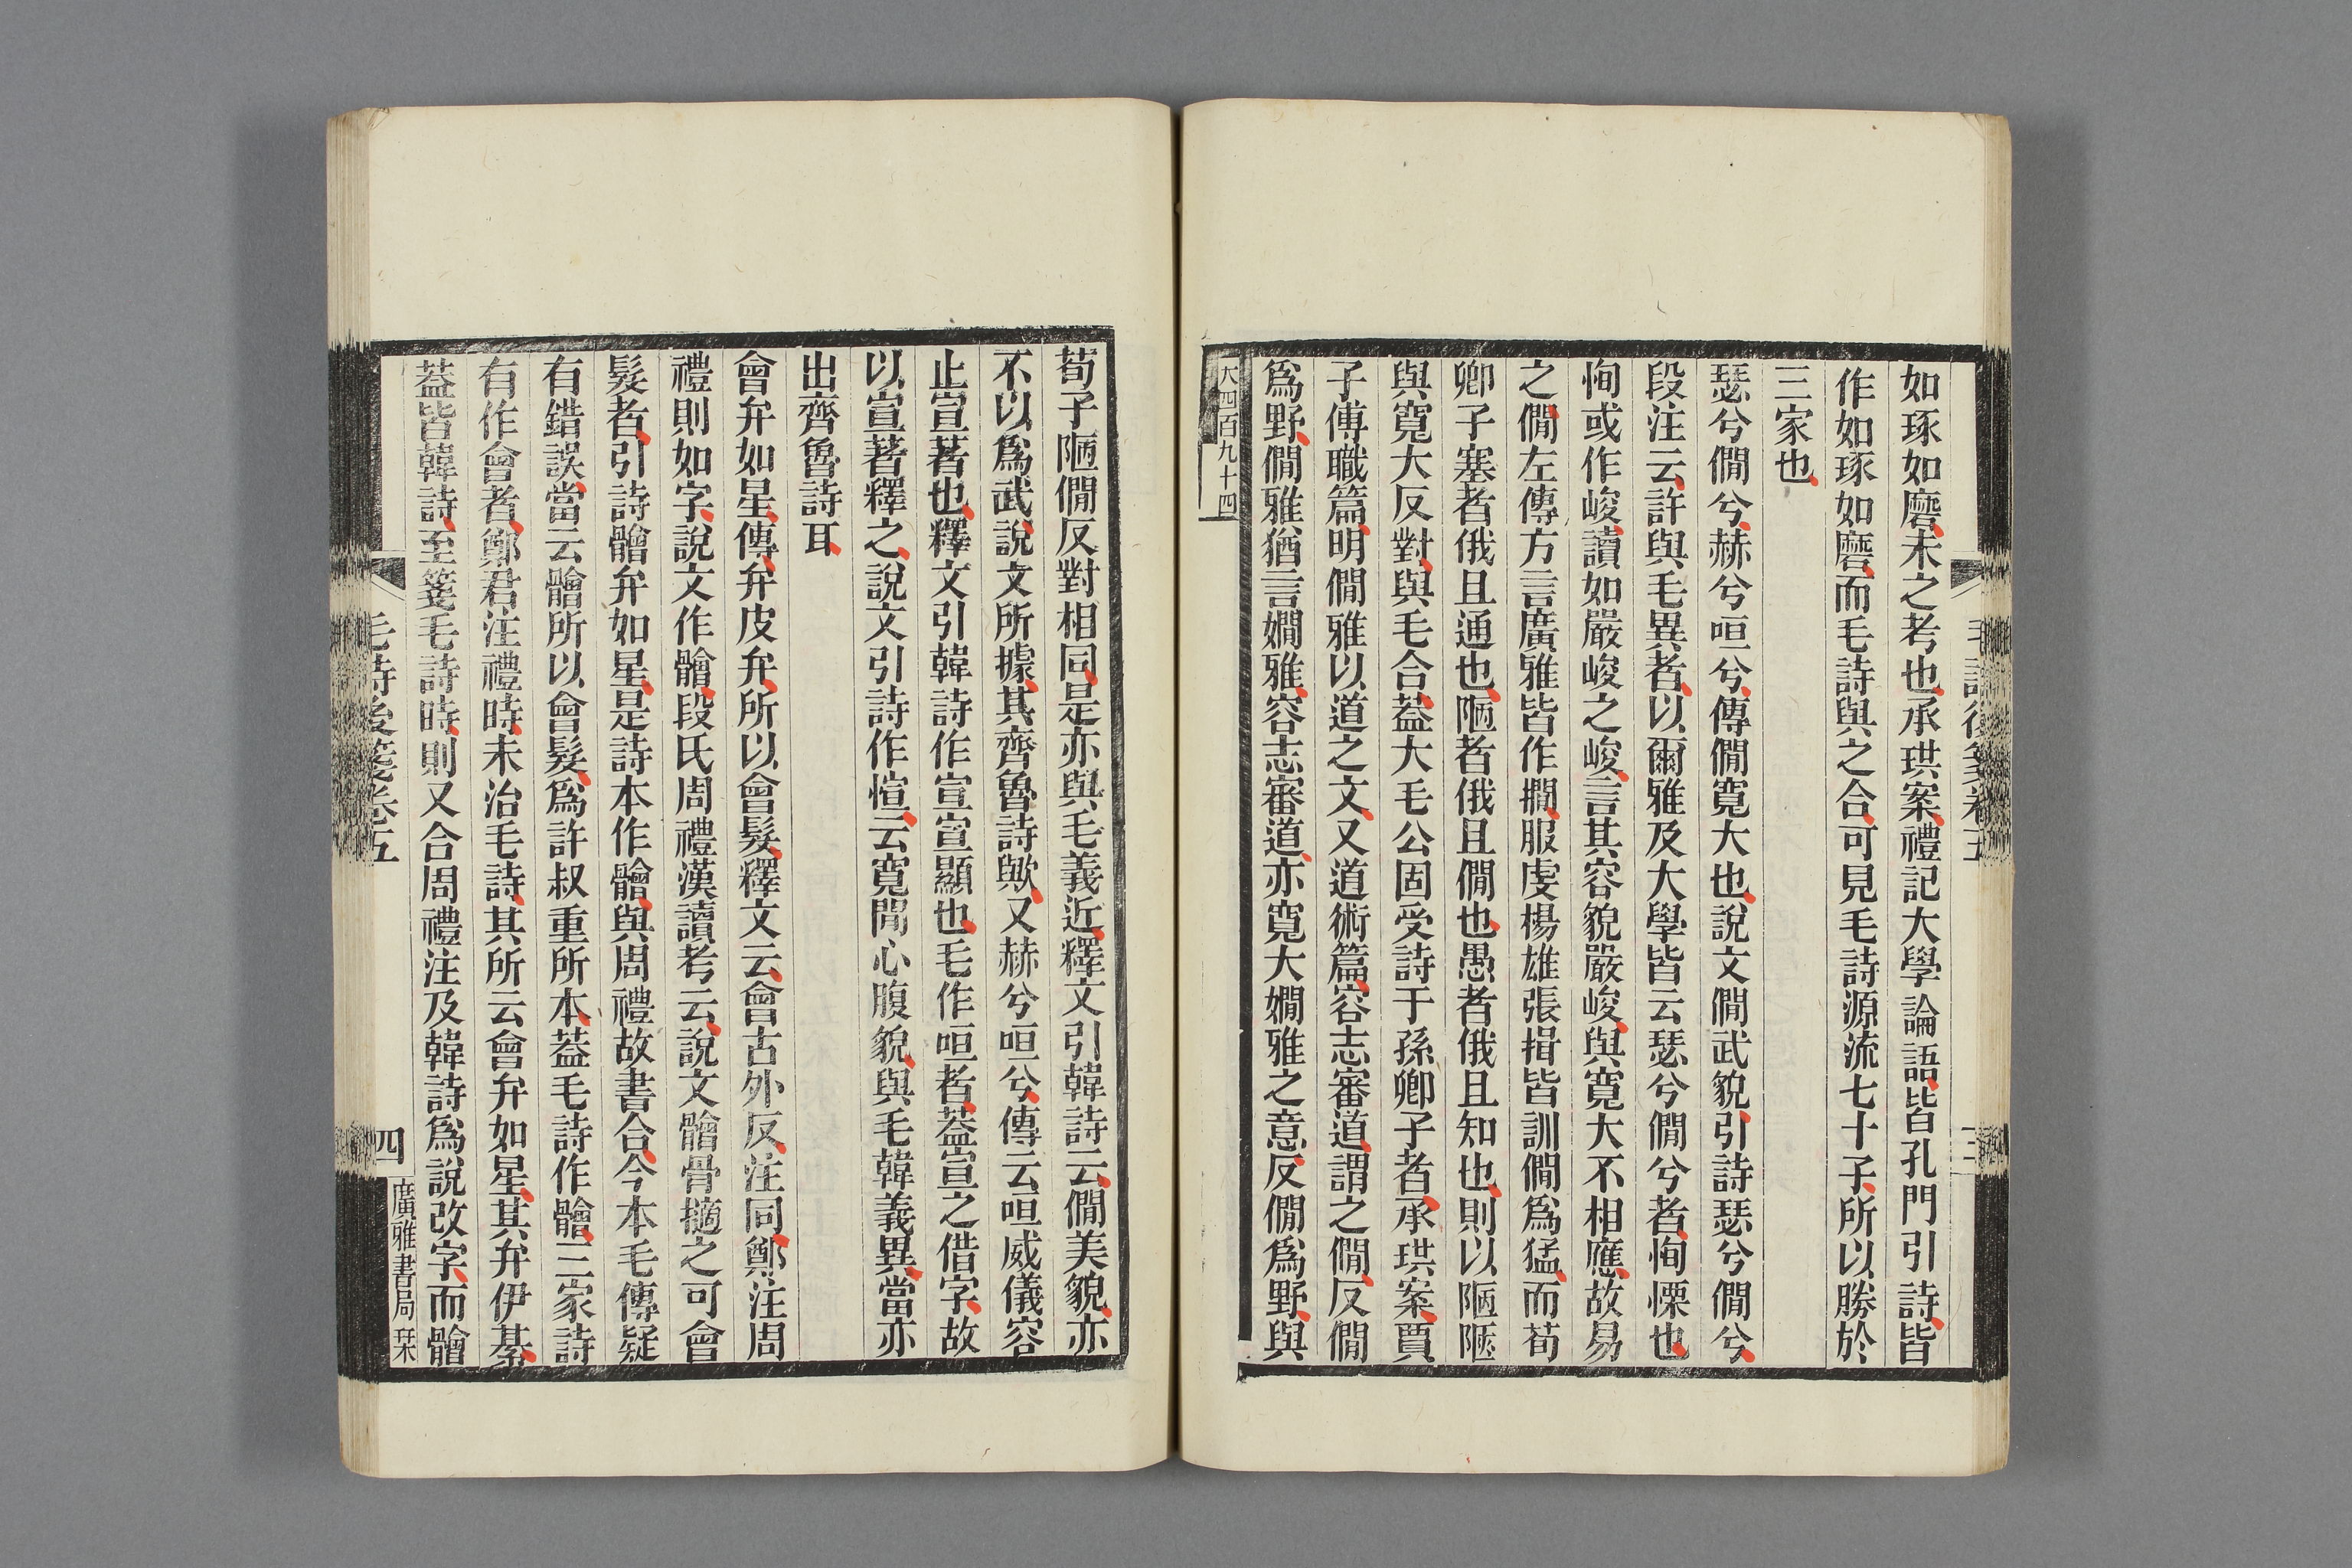 毛詩後箋卷五
三
如琢如磨未之考也承珙案禮記大學論語皆孔門引詩皆
作如琢如磨而毛詩與之合可見毛詩源流七十子所以勝於
三家也
瑟兮僩兮赫兮咺兮傳僩寬大也說文僩武貌引詩瑟兮僩兮
段注云許與毛異者以爾雅及大學皆云瑟兮僩兮者恂慄也
恂或作峻讀如嚴峻之峻言其容貌嚴峻與寬大不相應故易
之僩左傳方言廣雅皆作撊服虔楊雄張揖皆訓僩爲猛而荀
卿子塞者俄且通也陋者俄且僩也愚者俄且知也則以陋陿
與寬大反對與毛合葢大毛公固受詩于孫卿子者承珙案賈
子傅職篇明僩雅以道之文又道術篇容志審道謂之僩反僩
爲野僩雅猶言嫺雅容志審道亦寬大嫺雅之意反僩爲野與
大四百九十四
荀子陋僩反對相同是亦與毛義近釋文引韓詩云僩美貌亦
不以爲武說文所據其齊魯詩歟又赫兮咺兮傳云咺威儀容
止宣著也釋文引韓詩作宣宣顯也毛作咺者葢宣之借字故
以宣著釋之說文引詩作愃云寬閒心腹貌與毛韓義異當亦
出齊魯詩耳
會弁如星傳弁皮弁所以會髮釋文云會古外反注同鄭注周
禮則如字說文作䯤段氏周禮漢讀考云說文䯤骨擿之可會
髮者引詩䯤弁如星是詩本作䯤與周禮故書合今本毛傳疑
有錯誤當云䯤所以會髮爲許叔重所本葢毛詩作䯤三家詩
有作會者鄭君注禮時未治毛詩其所云會弁如星其弁伊綦
葢皆韓詩至箋毛詩時則又合周禮注及韓詩爲說改字而䯤
毛詩後箋卷五
四
廣雅書局栞